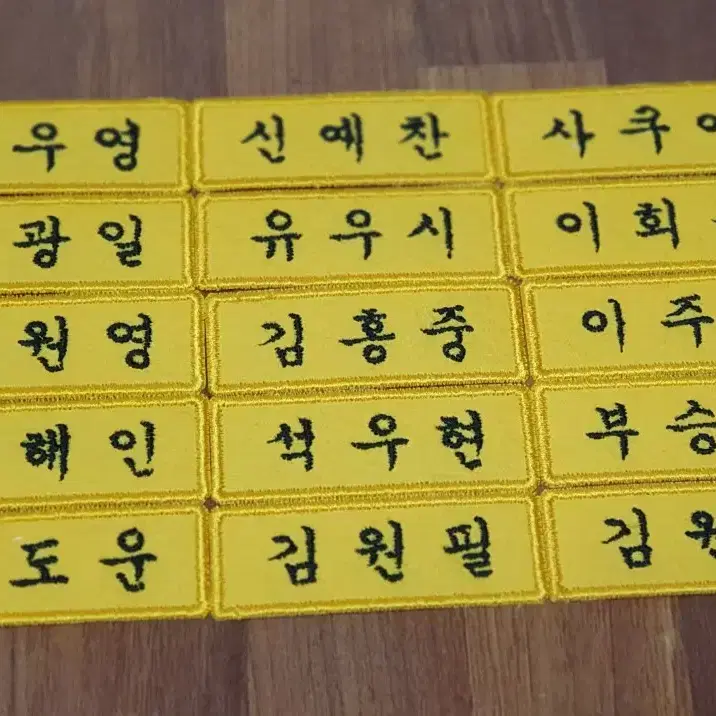 우영 신예찬 사쿠
광일 유우시 이회
원영 김홍중 이주
해인 석우현 부승
도운 김원필 김원